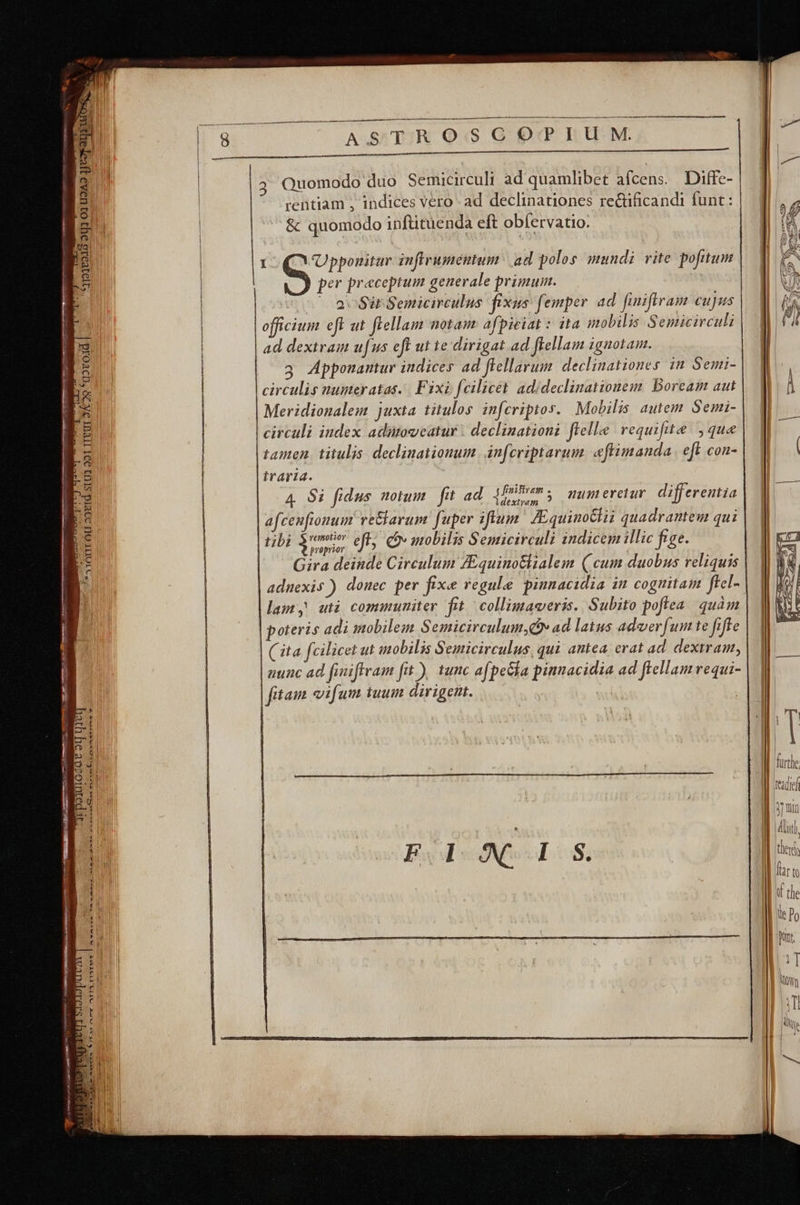 8 ASTROSCOPIUM.
3 Quomodo duo Semicirculi ad quamlibet aſcens. Diffe-
rentiam, indices vero ad declinationes rectificandi ſunt:
& quomodo inſtituenda eſt obſervatio.
1 SUpponitur inſtrumentum ad polos mundi rite poſitum
per præceptum generale primum.
2 Sit Semicirculus fixus ſemper ad ſiniſtram cujus
officium eſt ut ſtellam notam aſpiciat: ita mobilis Semicirculi
ad dextram uſus eſt ut te dirigat ad ſtellam ignotam.
3 Apponantur indices ad ſtellarum declinationes in Semi-
circulis numeratas. Fixi ſcilicet ad declinationem Boream aut
Meridionalem juxta titulos inſcriptos. Mobilis autem Semi-
circuli index admoveatur declinationi ſtellæ requiſitæ, quæ
tamen titulis declinationum inſcriptarum æſtimanda eſt con-
traria.
4 Si ſidus notum ſit ad {ſiniſtram / dextram}, numeretur differentia
aſcenſionum rectarum ſuper iſtum Æquinoctii quadrantem qui
tibi {remotior / proprior} eſt, & mobilis Semicirculi indicem illic fige.
Gira deinde Circulum Æquinoctialem (cum duobus reliquis
adnexis) donec per fixæ regulæ pinnacidia in cognitam ſtel-
lam, uti communiter fit collimaveris. Subito poſtea quàm
poteris adi mobilem Semicirculum, & ad latus adverſum te ſiſte
(ita ſcilicet ut mobilis Semicirculus, qui antea erat ad dextram,
nunc ad ſiniſtram ſit), tunc aſpecta pinnacidia ad ſtellam requi-
ſitam viſum tuum dirigent.
FINIS.